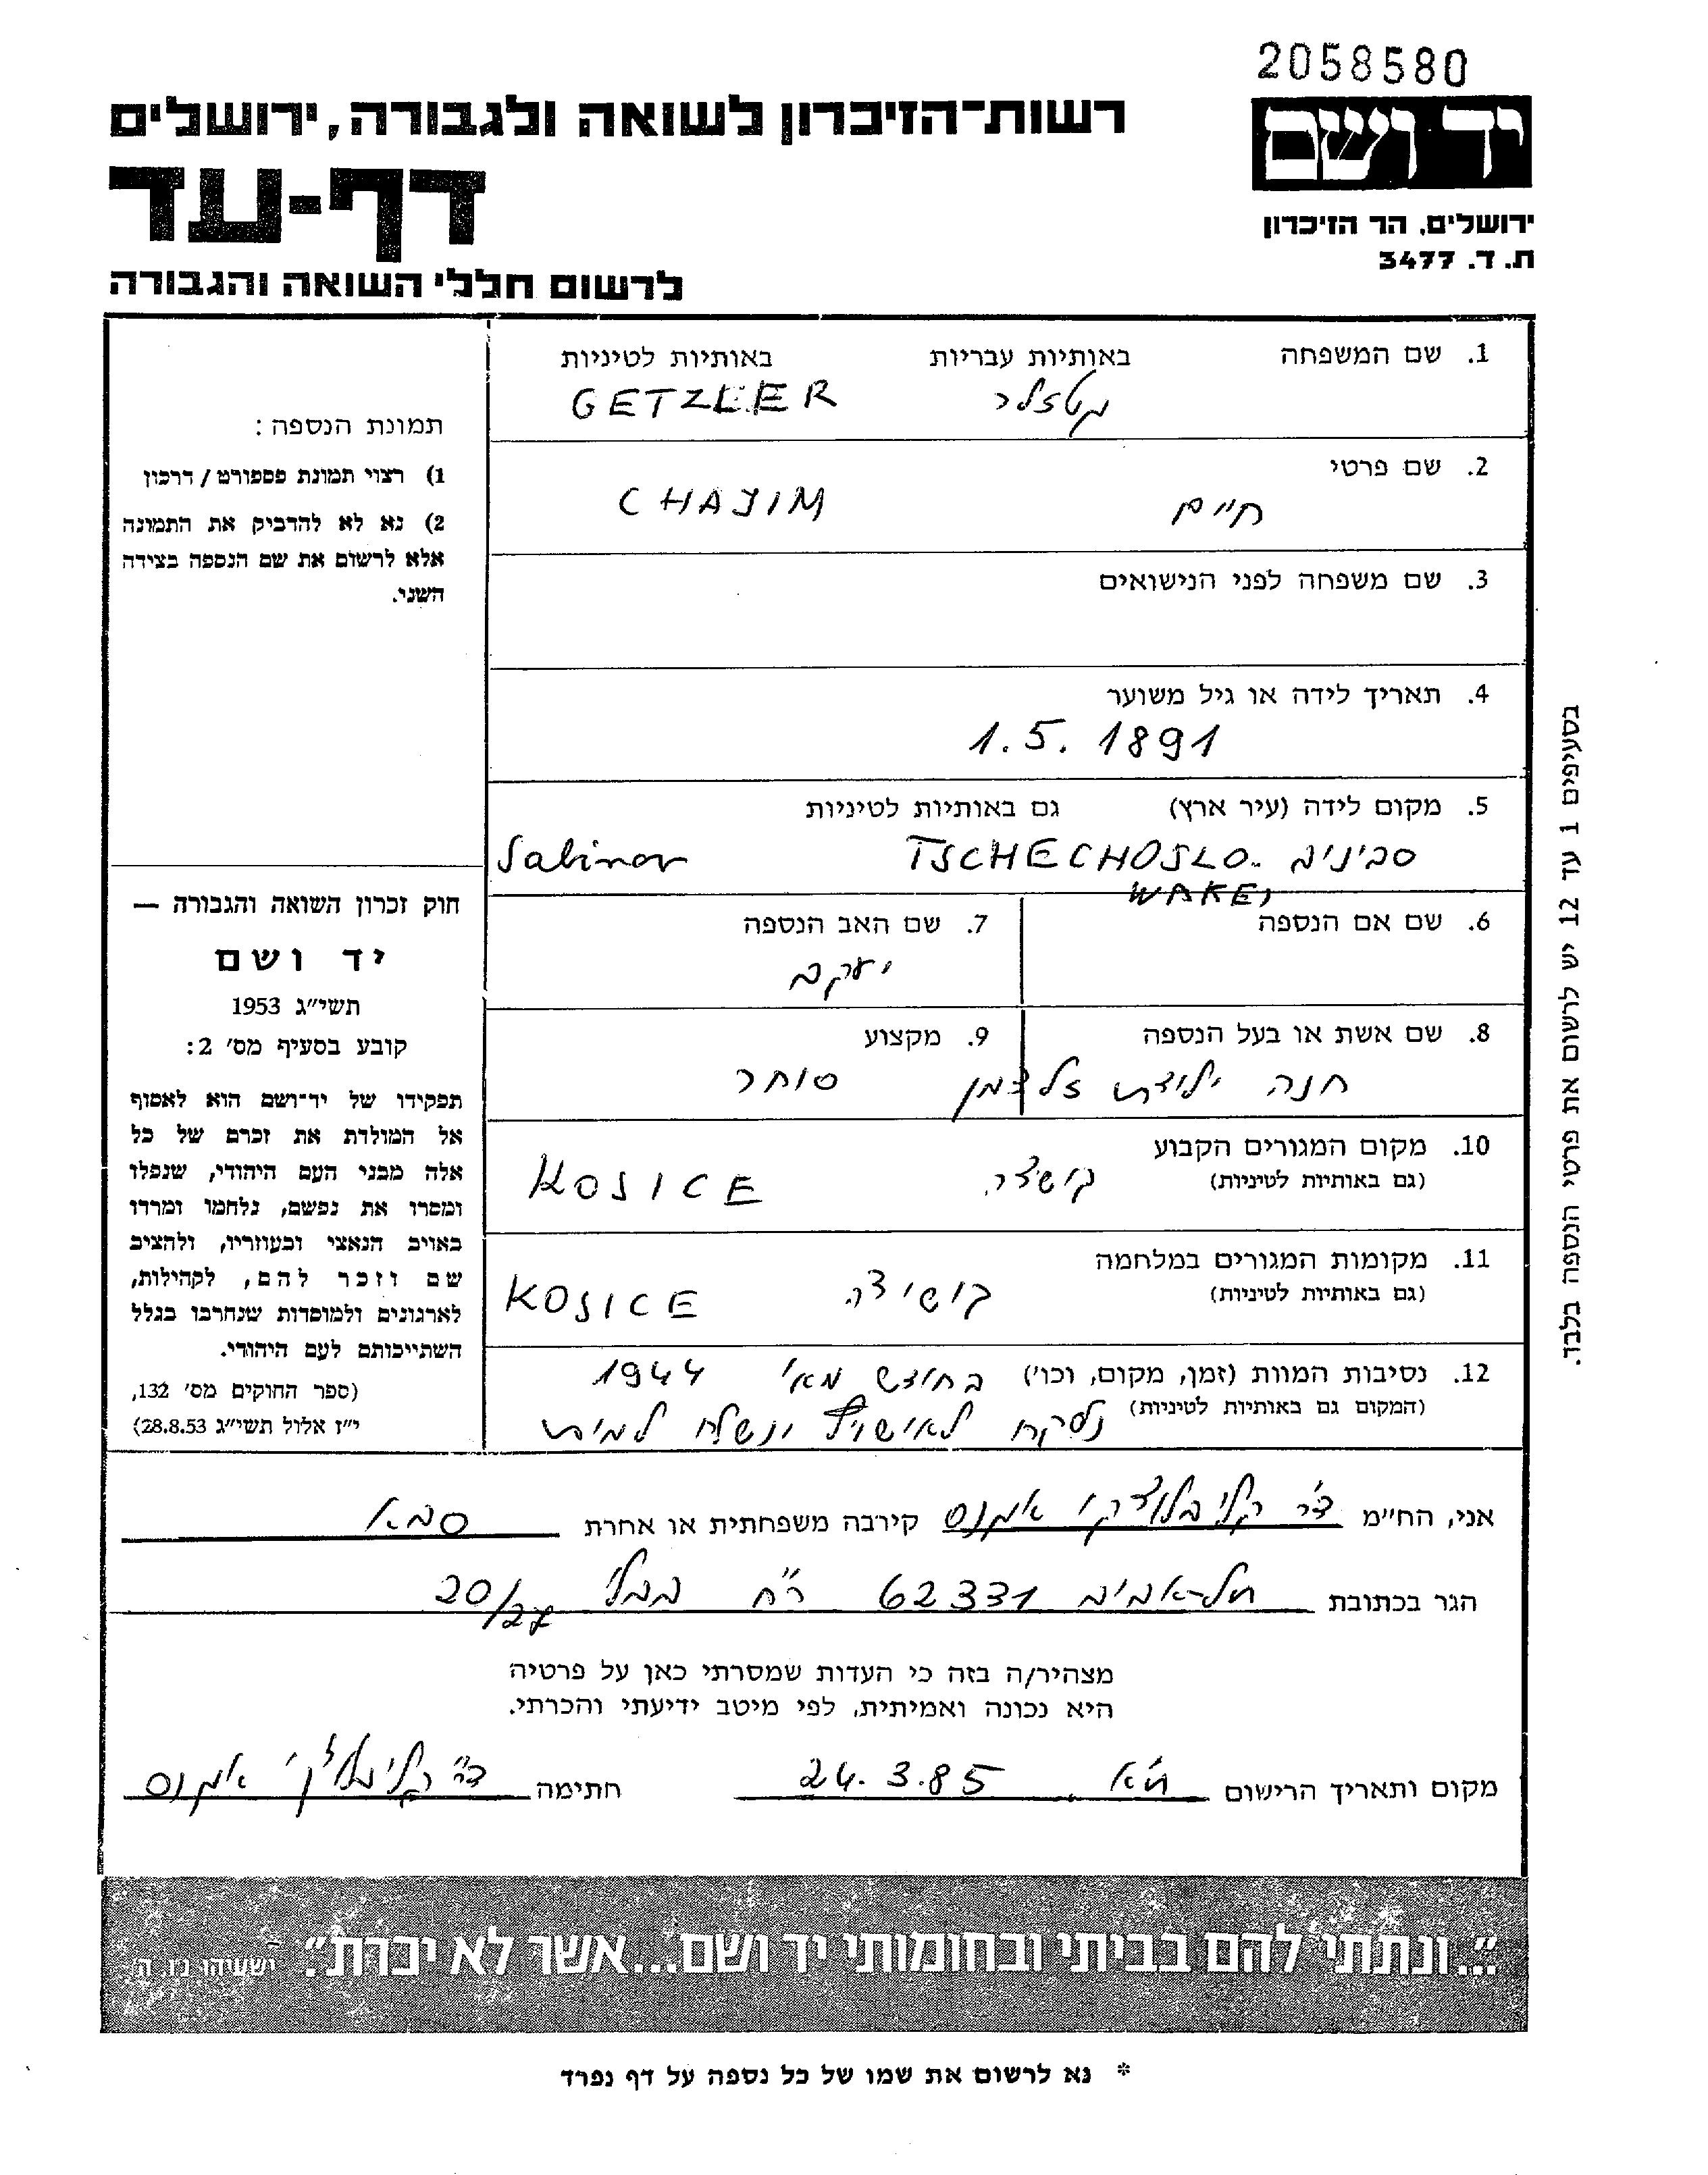 2058580
יד ושם
ירושלים, הר הזיכרון
ת. ד. 3477
רשות־הזיכרון לשואה ולגבורה, ירושלים
דף-עד
לרשום חללי השואה והגבורה
1. שם המשפחה באותיות עבריות באותיות לטיניות
GETZLER
2. שם פרטי
חיים CHAJIM
3. שם משפחה לפני הנישואים
4. תאריך לידה או גיל משוער
1.5.1891
5. מקום לידה (עיר ארץ) גם באותיות לטיניות
סבינוב TSCHECHOSLO- Sabinov
WAKEI
6. שם אם הנספה 7. שם האב הנספה
יעקב
8. שם אשת או בעל הנספה 9. מקצוע
חנה ילידת זלצמן סוחר
10. מקום המגורים הקבוע
(גם באותיות לטיניות)
KOSICE
11. מקומות המגורים במלחמה
(גם באותיות לטיניות)
קושיצה KOSICE
12. נסיבות המוות (זמן, מקום, וכו') בחודש מאי 1944
(המקום גם באותיות לטיניות) נלקח לאושויץ ונשלח למוות
תמונת הנספה:
1) רצוי תמונת פספורט / דרכון
2) נא לא להדביק את התמונה
אלא לרשום את שם הנספה בצידה
השני.
חוק זכרון השואה והגבורה —
יד ושם
תשי״ג 1953
קובע בסעיף מס׳ 2:
תפקידו של יד־ושם הוא לאסוף
אל המולדת את זכרם של כל
אלה מבני העם היהודי, שנפלו
ומסרו את נפשם, נלחמו ומרדו
באויב הנאצי ובעוזריו, ולהציב
שם וזכר להם, לקהילות,
לארגונים ולמוסדות שנחרבו בגלל
השתייכותם לעם היהודי.
(ספר החוקים מס׳ 132,
י״ז אלול תשי״ג 28.8.53)
בסעיפים 1 עד 12 יש לרשום את פרטי הנספה בלבד.
אני, הח״מ ד״ר אגנס קירבה משפחתית או אחרת סבא
הגר בכתובת תל-אביב 62331 רח׳ בבלי 20/27
מצהיר/ה בזה כי העדות שמסרתי כאן על פרטיה
היא נכונה ואמיתית, לפי מיטב ידיעתי והכרתי.
מקום ותאריך הרישום ת״א 24.3.85 חתימה ד״ר אגנס
״...ונתתי להם בביתי ובחומותי יד ושם...אשר לא יכרת״. ישעיהו נו, ה׳
* נא לרשום את שמו של כל נספה על דף נפרד